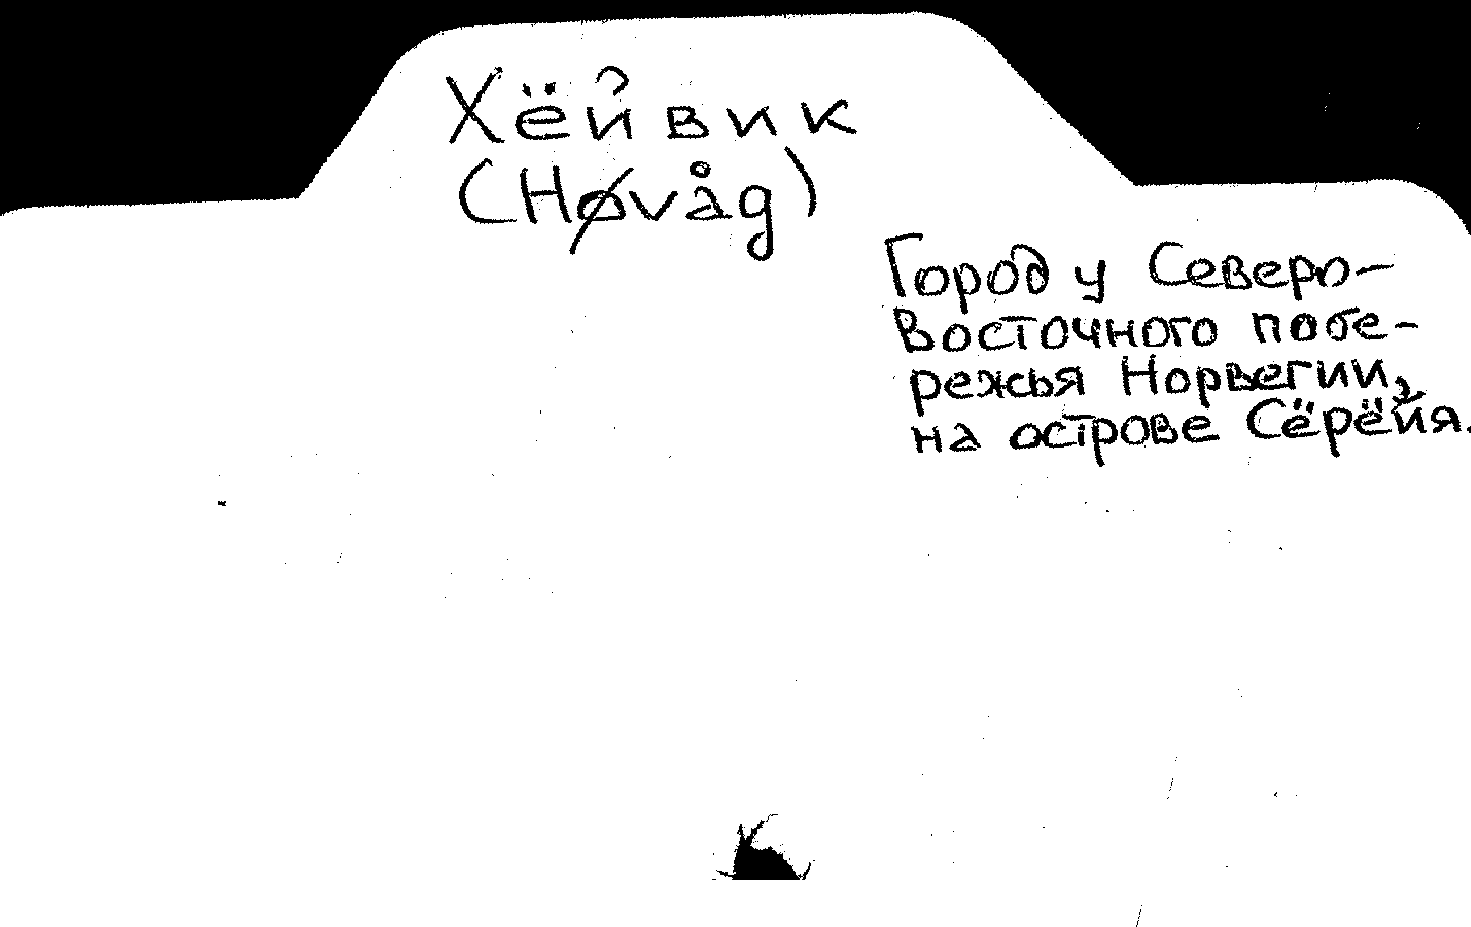 Хёйвик
(Høvåg)
Город у Северо-
Восточного побе-
режья Норвегии,
на острове Сёрёйя.